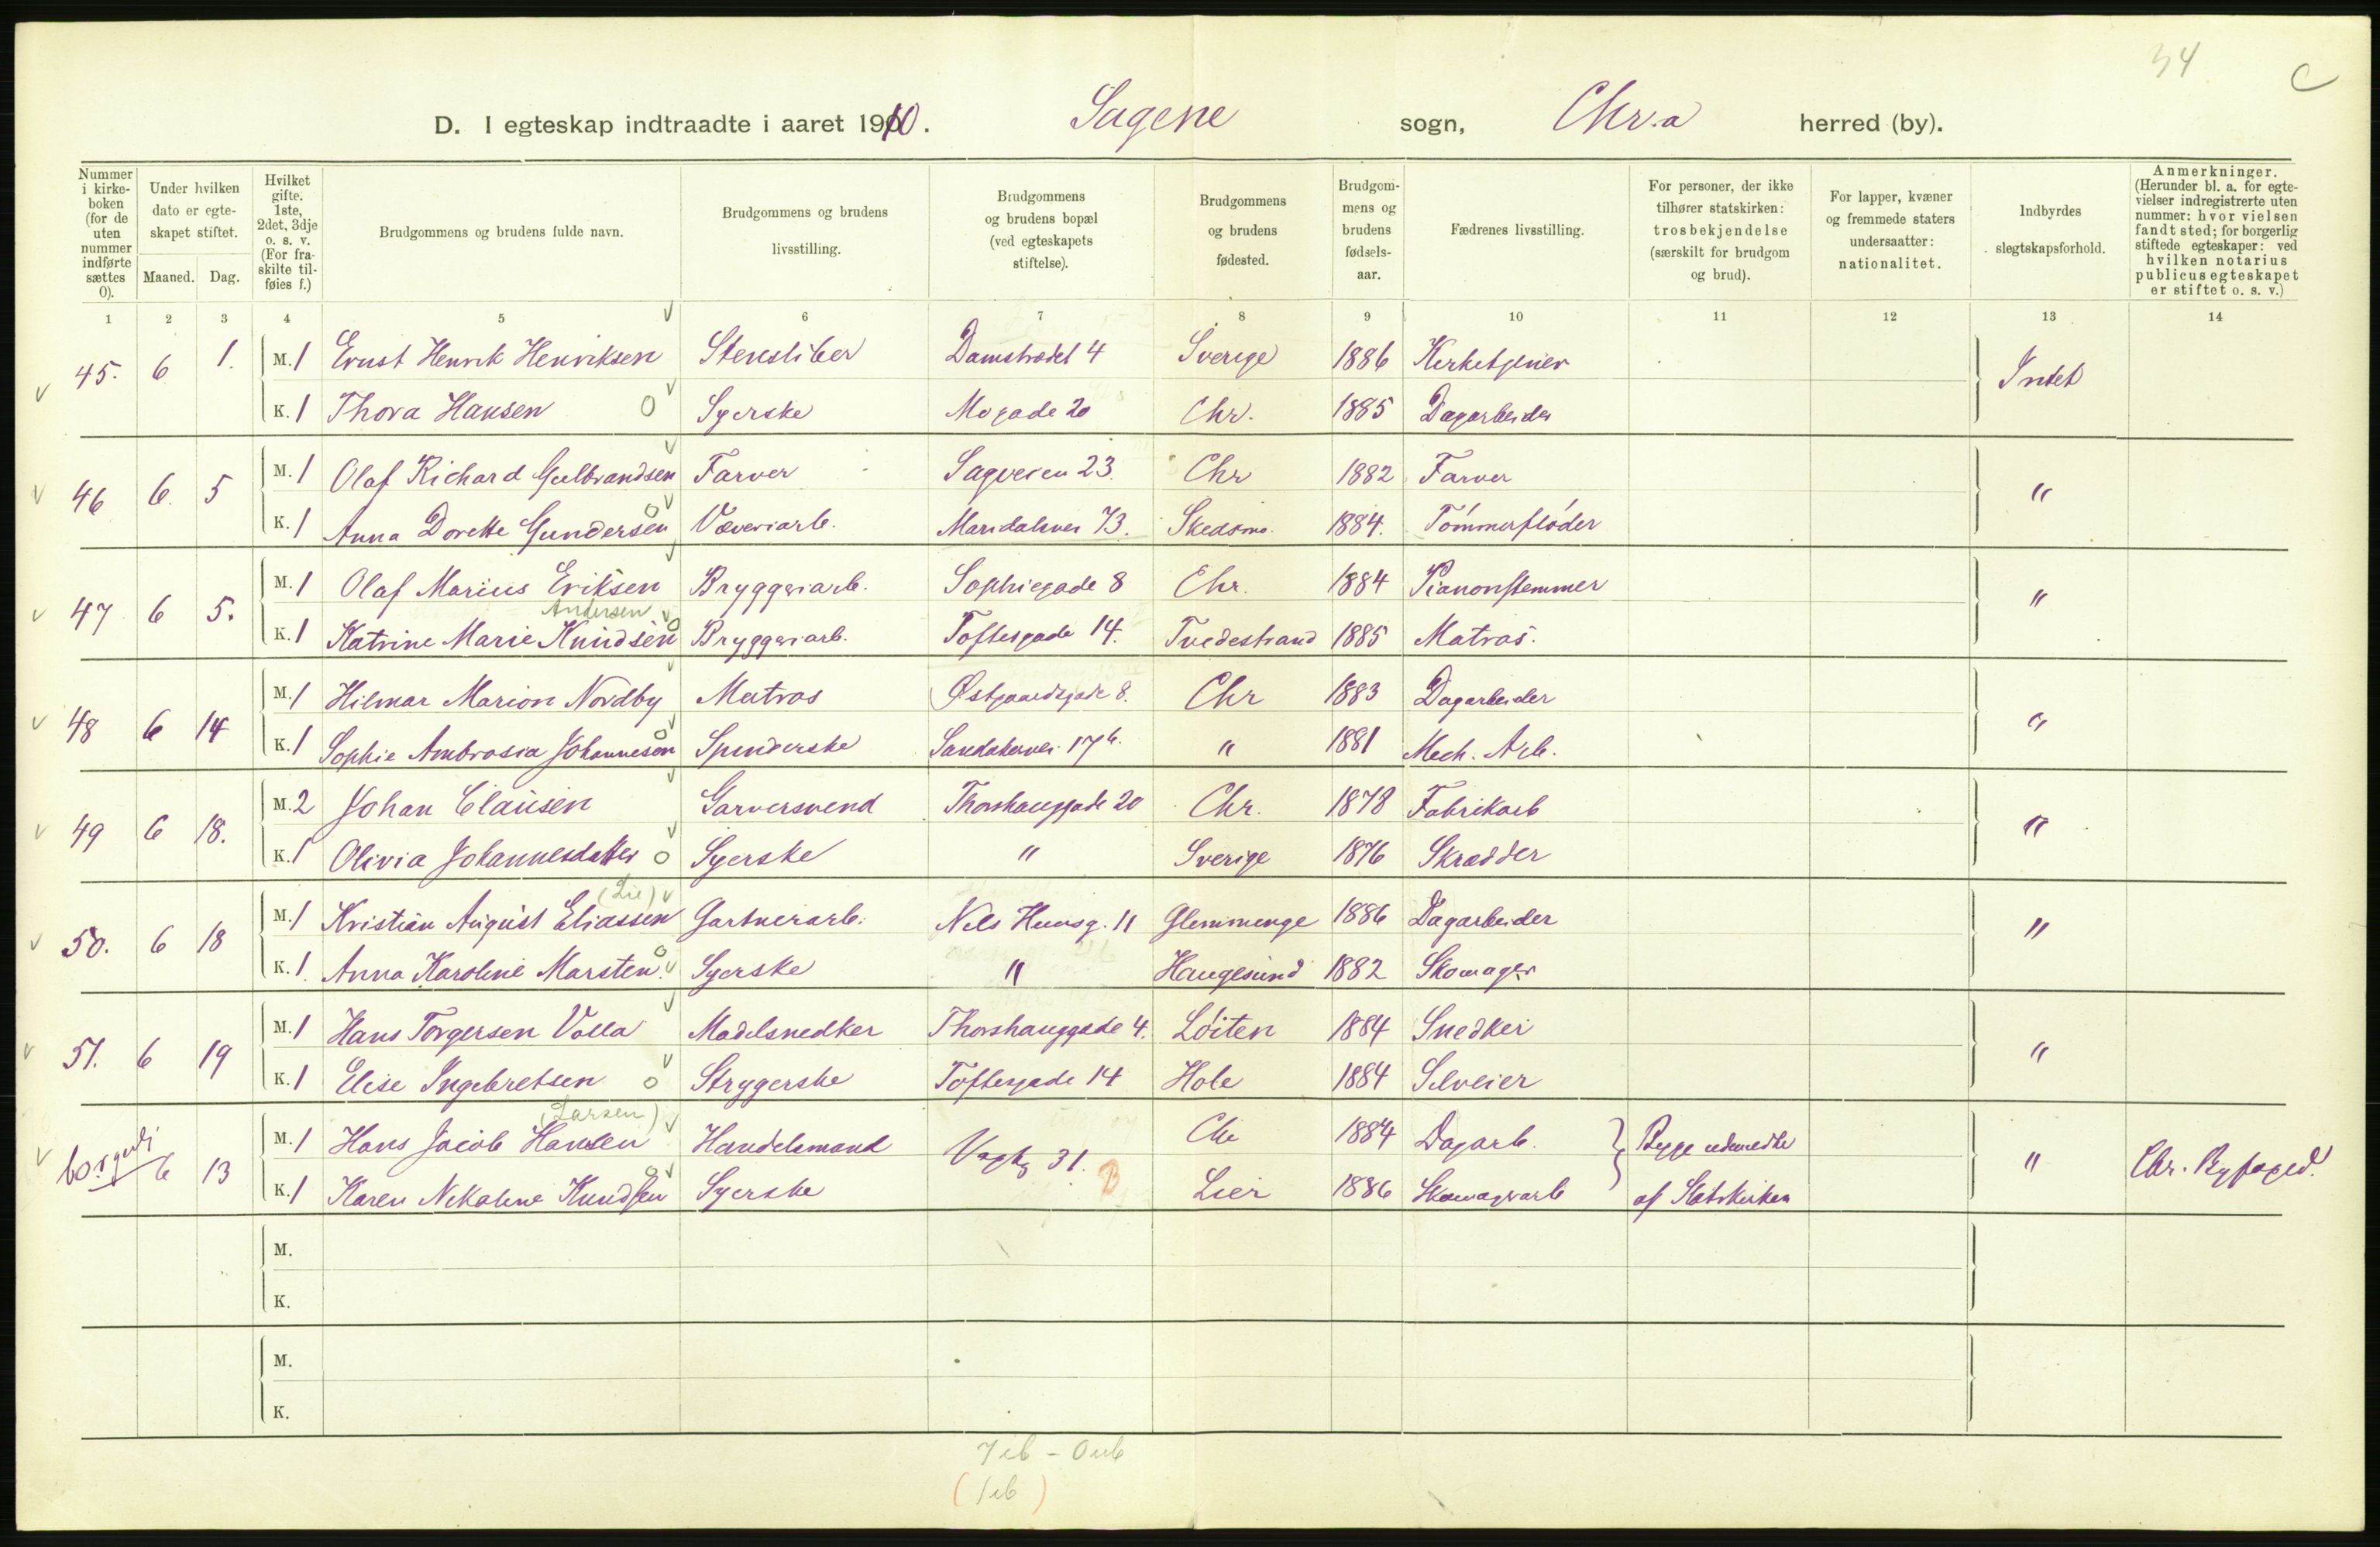 34
C
D. I egteskap indtraadte i aaret 1910. Sagene sogn, Chr.a herred (by).
Nummer i kirkeboken (for de uten nummer indførte sættes 0).
Under hvilken dato er egteskapet stiftet.
Maaned. Dag.
Hvilket gifte. 1ste, 2det, 3dje o. s. v. (For fraskilte tilføies f.)
Brudgommens og brudens fulde navn.
Brudgommens og brudens livsstilling.
Brudgommens og brudens bopæl (ved egteskapets stiftelse).
Brudgommens og brudens fødested.
Brudgommens og brudens fødselsaar.
Fædrenes livsstilling.
For personer, der ikke tilhører statskirken: trosbekjendelse (særskilt for brudgom og brud).
For lapper, kvæner og fremmede staters undersaatter: nationalitet.
Indbyrdes slegtskapsforhold.
Anmerkninger. (Herunder bl. a. for egtevielser indregistrerte uten nummer: hvor vielsen fandt sted; for borgerlig stiftede egteskaper: ved hvilken notarius publicus egteskapet er stiftet o. s. v.)
1 2 3 4 5 6 7 8 9 10 11 12 13 14
45. 6 1. M. 1 Ernst Henrik Henriksen Stensliber Damstrædet 4 Sverige 1886 Kirketjener Intet
K. 1 Thora Hansen O Syerske Mogade 20 Chr. 1885 Dagarbeider
46 6. 5 M. 1 Olaf Richard Gulbrandsen Farver Sagveien 23. Chr 1882 Farver "
K. 1 Anna Dorette Gundersen O Væveriarb. Maridalsvei 73. Skedsmo. 1884. Tømmerfløder
47 6 5. M. 1 Olaf Marius Eriksen Bryggeriarb. Sophiegade 8 Chr. 1884 Pianonstemmer "
Andersen
K. 1 Katrine Marie Knudsen O Bryggeriarb. Toftesgade 14. Tvedestrand 1885 Matros.
48 6 14 M. 1 Hilmar Marion Nordby Matros Østgaardsgade 8. Chr 1883 Dagarbeider "
K. 1 Sophie Ambrosia Johannesen O Spinderske Sandakervei 17 b. " 1881 Mech. Arb.
49 6 18. M. 2 Johan Clausen Garversvend Thorshauggade 20 Chr. 1878 Fabrikarb "
K. 1 Olivia Johannesdatter O Syerske " Sverige 1876 Skrædder
(Lie)
50. 6 18 M. 1 Kristian August Eliassen Gartnerarb. Nels Huusg. 11 Glemminge 1886 Dagarbeider "
K. 1. Anna Karoline Marsten. O Syerske " Haugesund 1882 Skomager
51. 6 19 M. 1 Hans Torgersen Volla Modelsnedker Thorshauggade 4. Løiten 1884 Snedker "
K. 1 Elise Ingebretsen O Strygerske Toftesgade 14 Hole 1884 Selveier
(Larsen)
6 13 M. 1 Hans Jacob Hansen Handelsmand 31. Chr 1884 Dagarb. Begge udmeldte " Chr. Byfoged.
K. 1 Karen Nekoline Knudsen O Syerske Lier 1886 Skomagerarb af Statskirken
M.
K.
M.
K.
7 ib - 0 ub
(1 ib)